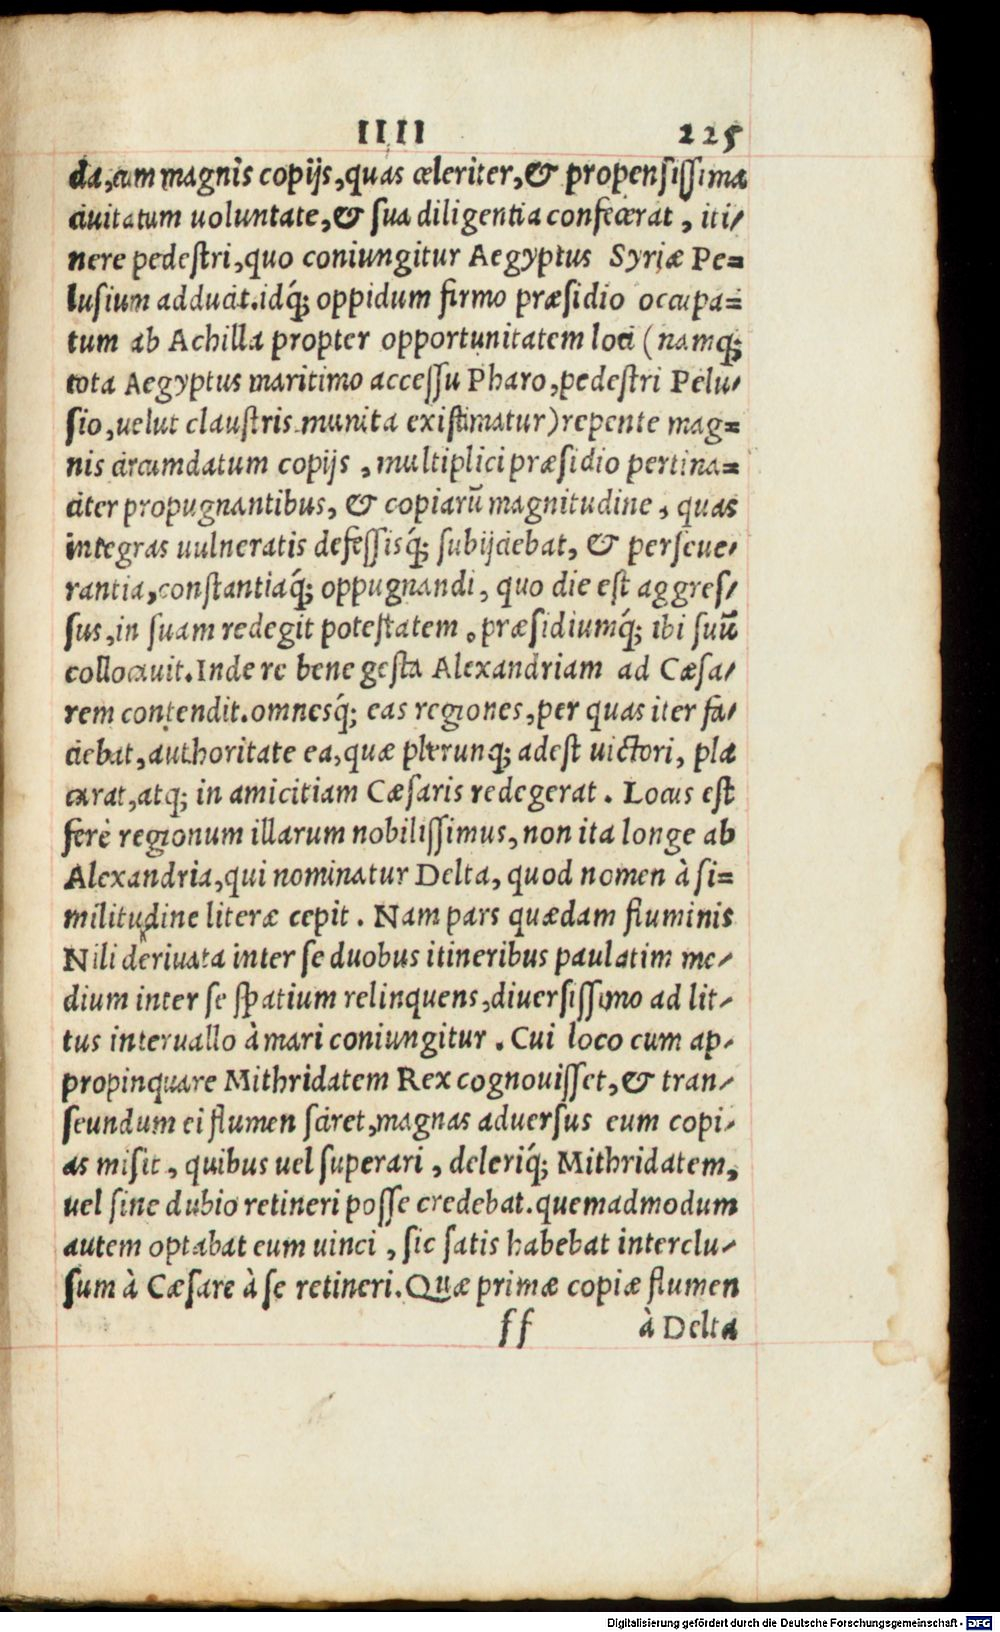 IIII 225
da, cum magnis copijs, quas celeriter, & propensissima
ciuitatum uoluntate, & sua diligentia confecerat, iti-
nere pedestri, quo coniungitur Aegyptus Syriæ Pe=
lusium adducit. idq́; oppidum firmo præsidio occupa=
tum ab Achilla propter opportunitatem loci (namq;
tota Aegyptus maritimo accessu Pharo, pedestri Pelu-
sio, uelut claustris munita existimatur) repente mag=
nis circumdatum copijs, multiplici præsidio pertina=
citer propugnantibus, & copiarū magnitudine, quas
integras uulneratis defessisq́; subijciebat, & perseue-
rantia, constantiaq́; oppugnandi, quo die est aggres-
sus, in suam redegit potestatem. præsidiumq́; ibi suū
collocauit. Inde re bene gesta Alexandriam ad Cæsa-
rem contendit. omnesq́; eas regiones, per quas iter fa-
ciebat, authoritate ea, quæ plerunq; adest uictori, pla
carat, atq; in amicitiam Cæsaris redegerat. Locus est
ferè regionum illarum nobilissimus, non ita longe ab
Alexandria, qui nominatur Delta, quod nomen à si=
militudine literæ cepit. Nam pars quædam fluminis
Nili deriuata inter se duobus itineribus paulatim me-
dium inter se spatium relinquens, diuersissimo ad lit-
tus interuallo à mari coniungitur. Cui loco cum ap-
propinquare Mithridatem Rex cognouisset, & tran-
seundum ei flumen sciret, magnas aduersus eum copi-
as misit, quibus uel superari, deleriq́; Mithridatem,
uel sine dubio retineri posse credebat. quemadmodum
autem optabat eum uinci, sic satis habebat interclu-
sum à Cæsare à se retineri. Quæ primæ copiæ flumen
ff à Delta
Digitalisierung gefördert durch die Deutsche Forschungsgemeinschaft - DFG